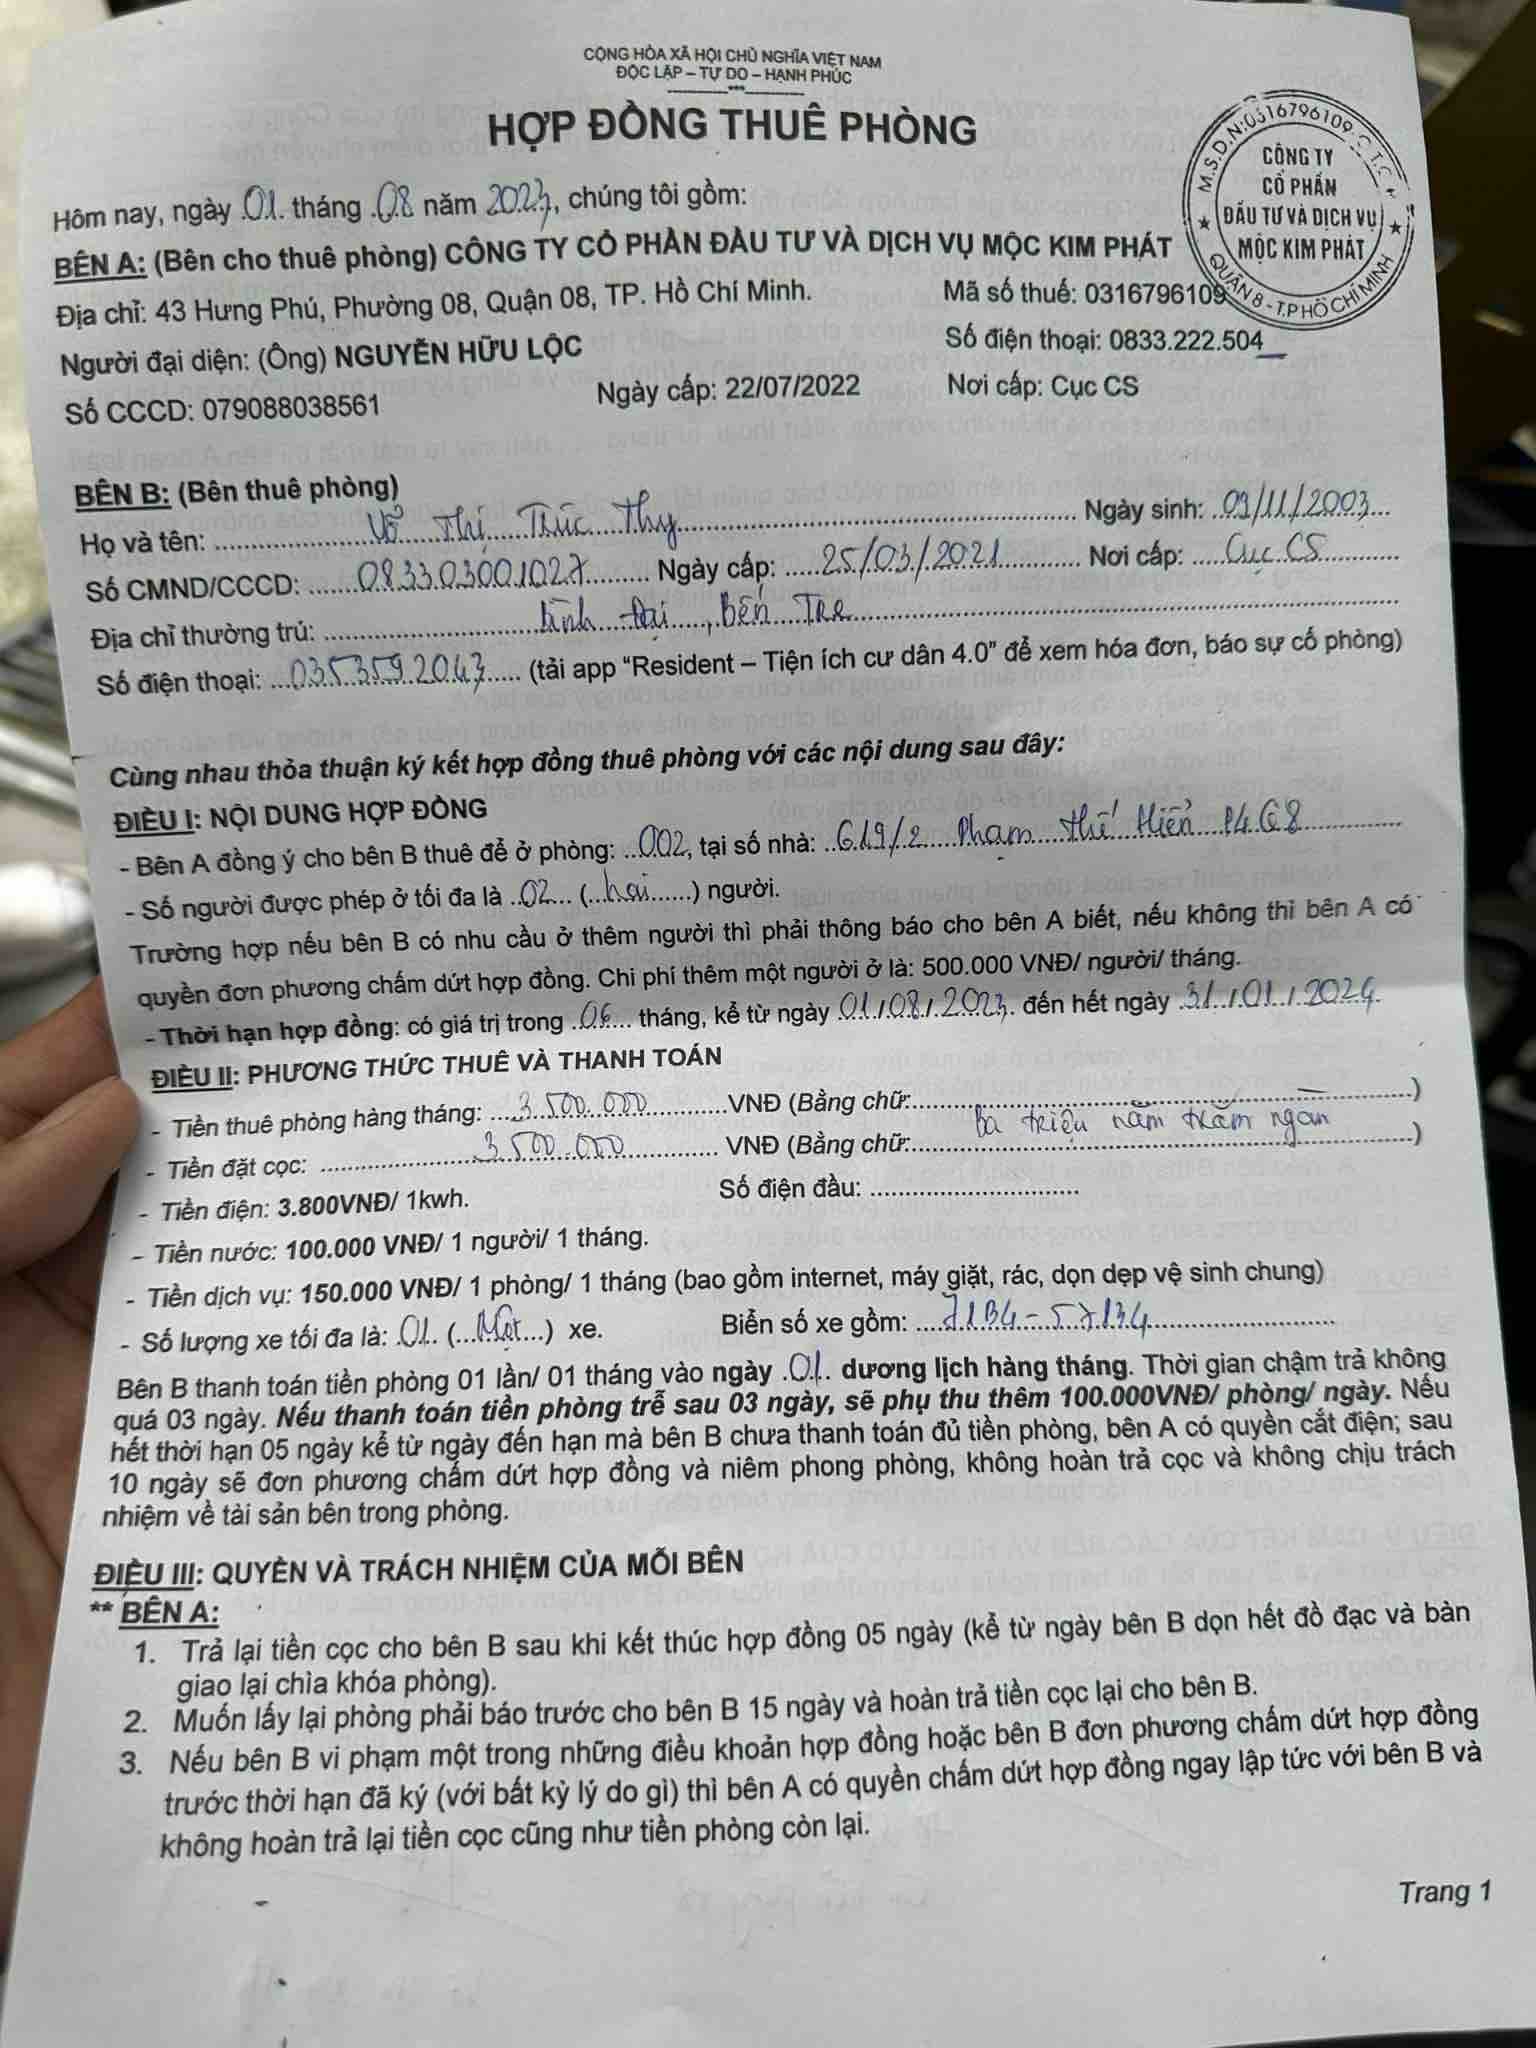 CỘNG HÒA XÃ HỘI CHỦ NGHĨA VIỆT NAM
ĐỘC LẬP – TỰ DO – HẠNH PHÚC
----------***----------
HỢP ĐỒNG THUÊ PHÒNG
M.S.D.N:0316796109-C.T.C.
CÔNG TY
CỔ PHẦN
ĐẦU TƯ VÀ DỊCH VỤ
MỘC KIM PHÁT
QUẬN 8 - T.P HỒ CHÍ MINH
Hôm nay, ngày 01 tháng 08 năm 2023, chúng tôi gồm:
BÊN A: (Bên cho thuê phòng) CÔNG TY CỔ PHẦN ĐẦU TƯ VÀ DỊCH VỤ MỘC KIM PHÁT
Địa chỉ: 43 Hưng Phú, Phường 08, Quận 08, TP. Hồ Chí Minh. Mã số thuế: 0316796109
Người đại diện: (Ông) NGUYỄN HỮU LỘC Số điện thoại: 0833.222.504
Số CCCD: 079088038561 Ngày cấp: 22/07/2022 Nơi cấp: Cục CS
BÊN B: (Bên thuê phòng)
Họ và tên: Võ Thị Trúc Thy Ngày sinh: 09/11/2003
Số CMND/CCCD: 083303001027 Ngày cấp: 25/03/2021 Nơi cấp: Cục CS
Địa chỉ thường trú: Bình Đại, Bến Tre
Số điện thoại: 0353592043 (tải app “Resident – Tiện ích cư dân 4.0” để xem hóa đơn, báo sự cố phòng)
Cùng nhau thỏa thuận ký kết hợp đồng thuê phòng với các nội dung sau đây:
ĐIỀU I: NỘI DUNG HỢP ĐỒNG
- Bên A đồng ý cho bên B thuê để ở phòng: 002, tại số nhà: 619/2 Phạm Thế Hiển P4 Q8
- Số người được phép ở tối đa là 02 (hai) người.
Trường hợp nếu bên B có nhu cầu ở thêm người thì phải thông báo cho bên A biết, nếu không thì bên A có
quyền đơn phương chấm dứt hợp đồng. Chi phí thêm một người ở là: 500.000 VNĐ/ người/ tháng.
- Thời hạn hợp đồng: có giá trị trong 06 tháng, kể từ ngày 01/08/2023. đến hết ngày 31/01/2024.
ĐIỀU II: PHƯƠNG THỨC THUÊ VÀ THANH TOÁN
- Tiền thuê phòng hàng tháng: 3.500.000 VNĐ (Bằng chữ: )
- Tiền đặt cọc: 3.500.000 VNĐ (Bằng chữ: Ba triệu năm trăm ngàn )
- Tiền điện: 3.800VNĐ/ 1kwh. Số điện đầu:
- Tiền nước: 100.000 VNĐ/ 1 người/ 1 tháng.
- Tiền dịch vụ: 150.000 VNĐ/ 1 phòng/ 1 tháng (bao gồm internet, máy giặt, rác, dọn dẹp vệ sinh chung)
- Số lượng xe tối đa là: 01 (Một) xe. Biển số xe gồm: 71B4-57134
Bên B thanh toán tiền phòng 01 lần/ 01 tháng vào ngày 01 dương lịch hàng tháng. Thời gian chậm trả không
quá 03 ngày. Nếu thanh toán tiền phòng trễ sau 03 ngày, sẽ phụ thu thêm 100.000VNĐ/ phòng/ ngày. Nếu
hết thời hạn 05 ngày kể từ ngày đến hạn mà bên B chưa thanh toán đủ tiền phòng, bên A có quyền cắt điện; sau
10 ngày sẽ đơn phương chấm dứt hợp đồng và niêm phong phòng, không hoàn trả cọc và không chịu trách
nhiệm về tài sản bên trong phòng.
ĐIỀU III: QUYỀN VÀ TRÁCH NHIỆM CỦA MỖI BÊN
** BÊN A:
1. Trả lại tiền cọc cho bên B sau khi kết thúc hợp đồng 05 ngày (kể từ ngày bên B dọn hết đồ đạc và bàn
giao lại chìa khóa phòng).
2. Muốn lấy lại phòng phải báo trước cho bên B 15 ngày và hoàn trả tiền cọc lại cho bên B.
3. Nếu bên B vi phạm một trong những điều khoản hợp đồng hoặc bên B đơn phương chấm dứt hợp đồng
trước thời hạn đã ký (với bất kỳ lý do gì) thì bên A có quyền chấm dứt hợp đồng ngay lập tức với bên B và
không hoàn trả lại tiền cọc cũng như tiền phòng còn lại.
Trang 1